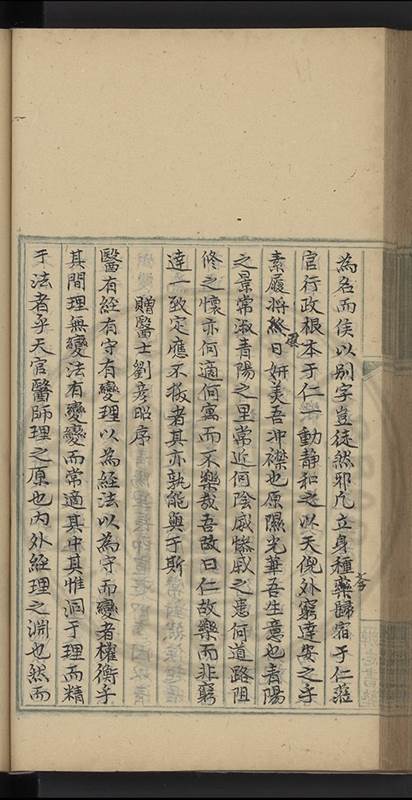 為名而俟以別字豈徒然邪凡立身種藥歸宿于仁蒞
官行政根本于仁一動靜和之以天倪外窮達安之乎
素履將終日妍美吾冲襟也原隰光華吾生意也青陽
之景常淑青陽之里常近何陰慼慘戚之患何道路阻
修之懷亦何適何寓而不樂哉吾故曰仁故樂而非窮
達一致定應不撓者其亦孰能與于斯
贈醫士劉彦昭序
醫有經有守有變理以為經法以為守而變者權衡乎
其間理無變法有變變而常適其中其惟洞于理而精
于法者乎天官醫師理之原也内外經理之淵也然而